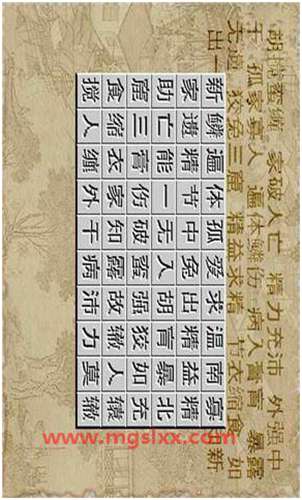 胡搅蛮缠 家破人亡 精力充沛 外强中
干 孤家寡人 遍体鳞伤 病入膏肓 暴露
无遗 狡兔三窟 精益求精 节衣缩食 如
出一 新
新鳞遍体孤爱求温南寡
家遗精节中兔出精益
助亡能一无入胡肓暴北
窟三膏伤破蛮强狡如充
食缩衣家知露故辙人辕
搅人缠外干病沛力莫辙
www.mgslxx.com